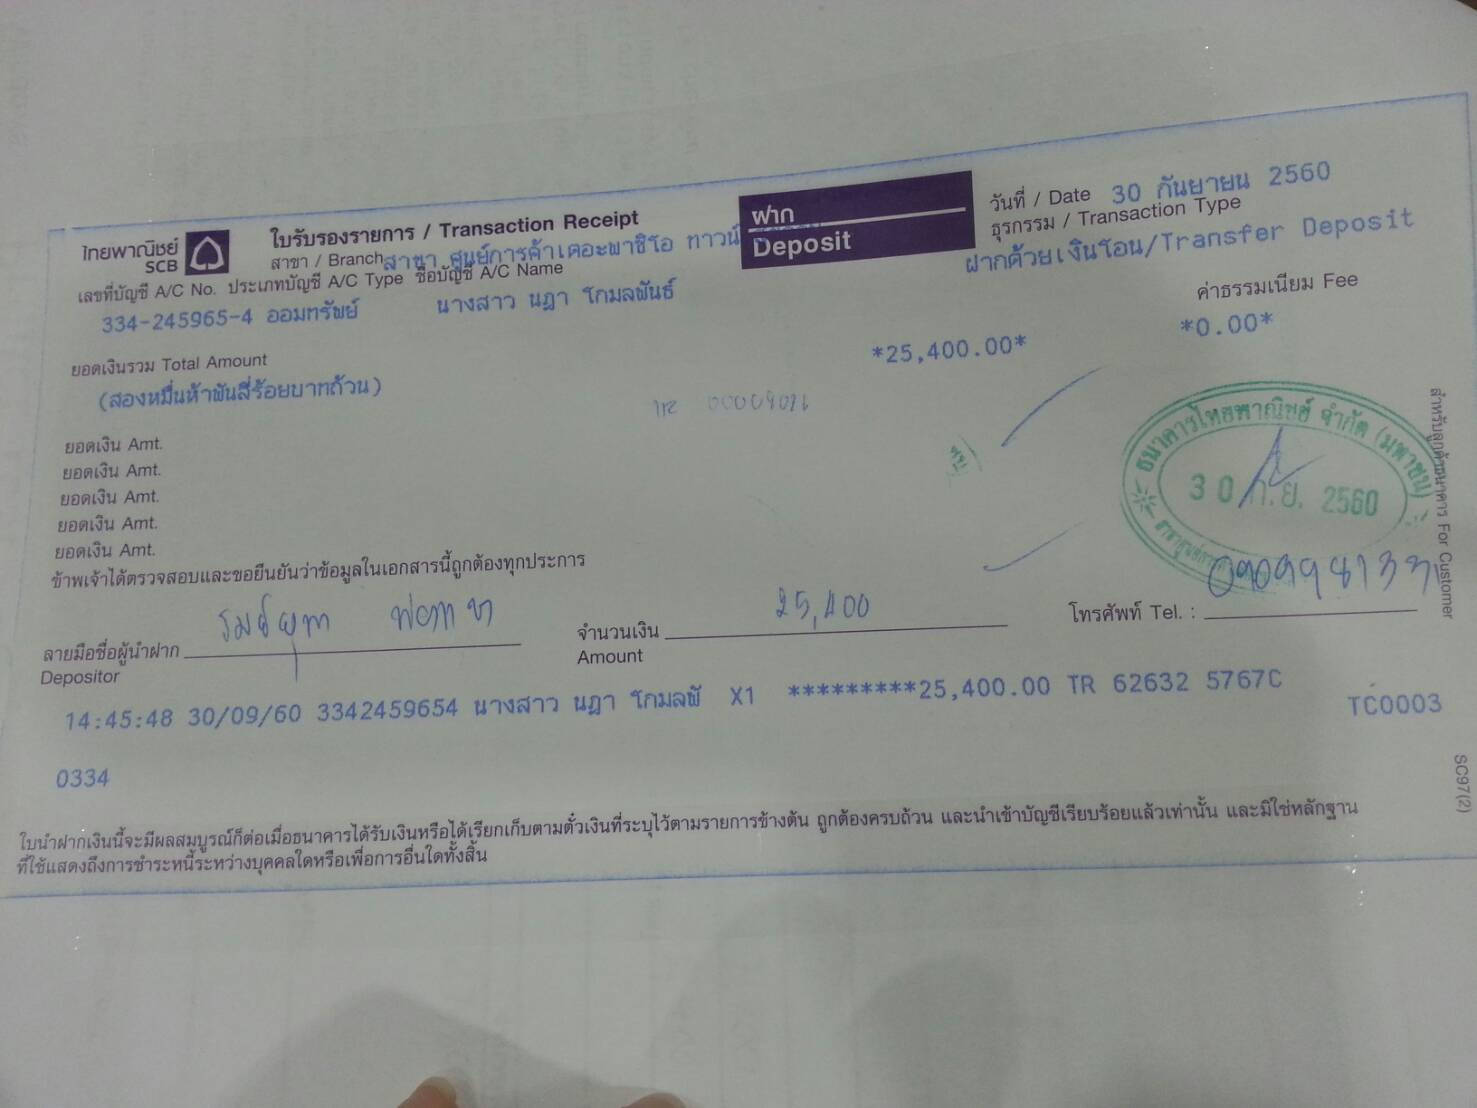 ไทยพาณิชย์
SCB
ใบรับรองรายการ / Transaction Receipt
ฝาก
Deposit
วันที่ / Date 30 กันยายน 2560
สาขา / Branch สาขา ศูนย์การค้าเดอะพาซิโอ ทาวน์
ธุรกรรม / Transaction Type
ฝากด้วยเงินโอน/Transfer Deposit
เลขที่บัญชี A/C No. ประเภทบัญชี A/C Type ชื่อบัญชี A/C Name
334-245965-4 ออมทรัพย์ นางสาว นฎา โกมลพันธ์
ค่าธรรมเนียม Fee
*0.00*
ยอดเงินรวม Total Amount
*25,400.00*
(สองหมื่นห้าพันสี่ร้อยบาทถ้วน)
ยอดเงิน Amt.
ยอดเงิน Amt.
ยอดเงิน Amt.
ยอดเงิน Amt.
ยอดเงิน Amt.
ธนาคารไทยพาณิชย์ จำกัด (มหาชน)
30 ก.ย. 2560
สำหรับลูกค้าธนาคาร For Customer
ข้าพเจ้าได้ตรวจสอบและขอยืนยันว่าข้อมูลในเอกสารนี้ถูกต้องทุกประการ
ลายมือชื่อผู้นำฝาก
Depositor
จำนวนเงิน 25,400
Amount
โทรศัพท์ Tel. :
14:45:48 30/09/60 3342459654 นางสาว นฎา โกมลพั X1 *********25,400.00 TR 62632 5767C
TC0003
0334
SC97(2)
ใบนำฝากเงินนี้จะมีผลสมบูรณ์ก็ต่อเมื่อธนาคารได้รับเงินหรือได้เรียกเก็บตามตั๋วเงินที่ระบุไว้ตามรายการข้างต้น ถูกต้องครบถ้วน และนำเข้าบัญชีเรียบร้อยแล้วเท่านั้น และมิใช่หลักฐาน
ที่ใช้แสดงถึงการชำระหนี้ระหว่างบุคคลใดหรือเพื่อการอื่นใดทั้งสิ้น